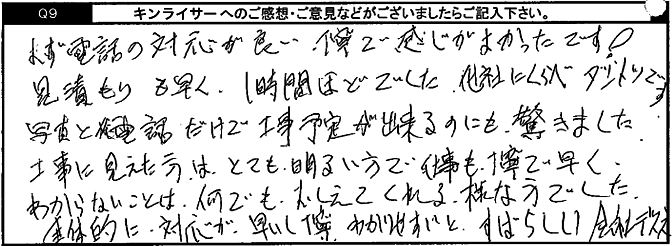 Q9 キンライサーへのご感想・ご意見などがございましたらご記入下さい。
まず電話の対応が良い、丁寧で感じがよかったです!
見積もりも早く、1時間ほどでした 他社にくらべダントツです
写真と電話だけで工事予定が出来るのにも、驚きました
工事に見えた方は、とても明るい方で仕事も丁寧で早く、
わからないことは、何でも、おしえてくれる様な方でした。
全体的に、対応が、早いし丁寧 わかりやすいと、すばらしい会社デス